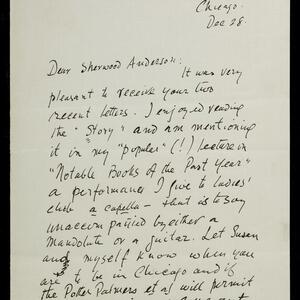 Chicago.
Dec 28.
Dear Sherwood Anderson:
It was very
pleasant to receive your two
recent letters. I enjoyed reading
the "Story" and am mentioning
it in my "popular" (!) lecture in
"Notable Books of the Past Year"
a performance I give to ladies'
clubs a capella - that is to say
unaccompanied by either a
mandolute or a guitar. Let Susan
and myself know when you
are to be in Chicago and if
the Potter Palmers et al will permit